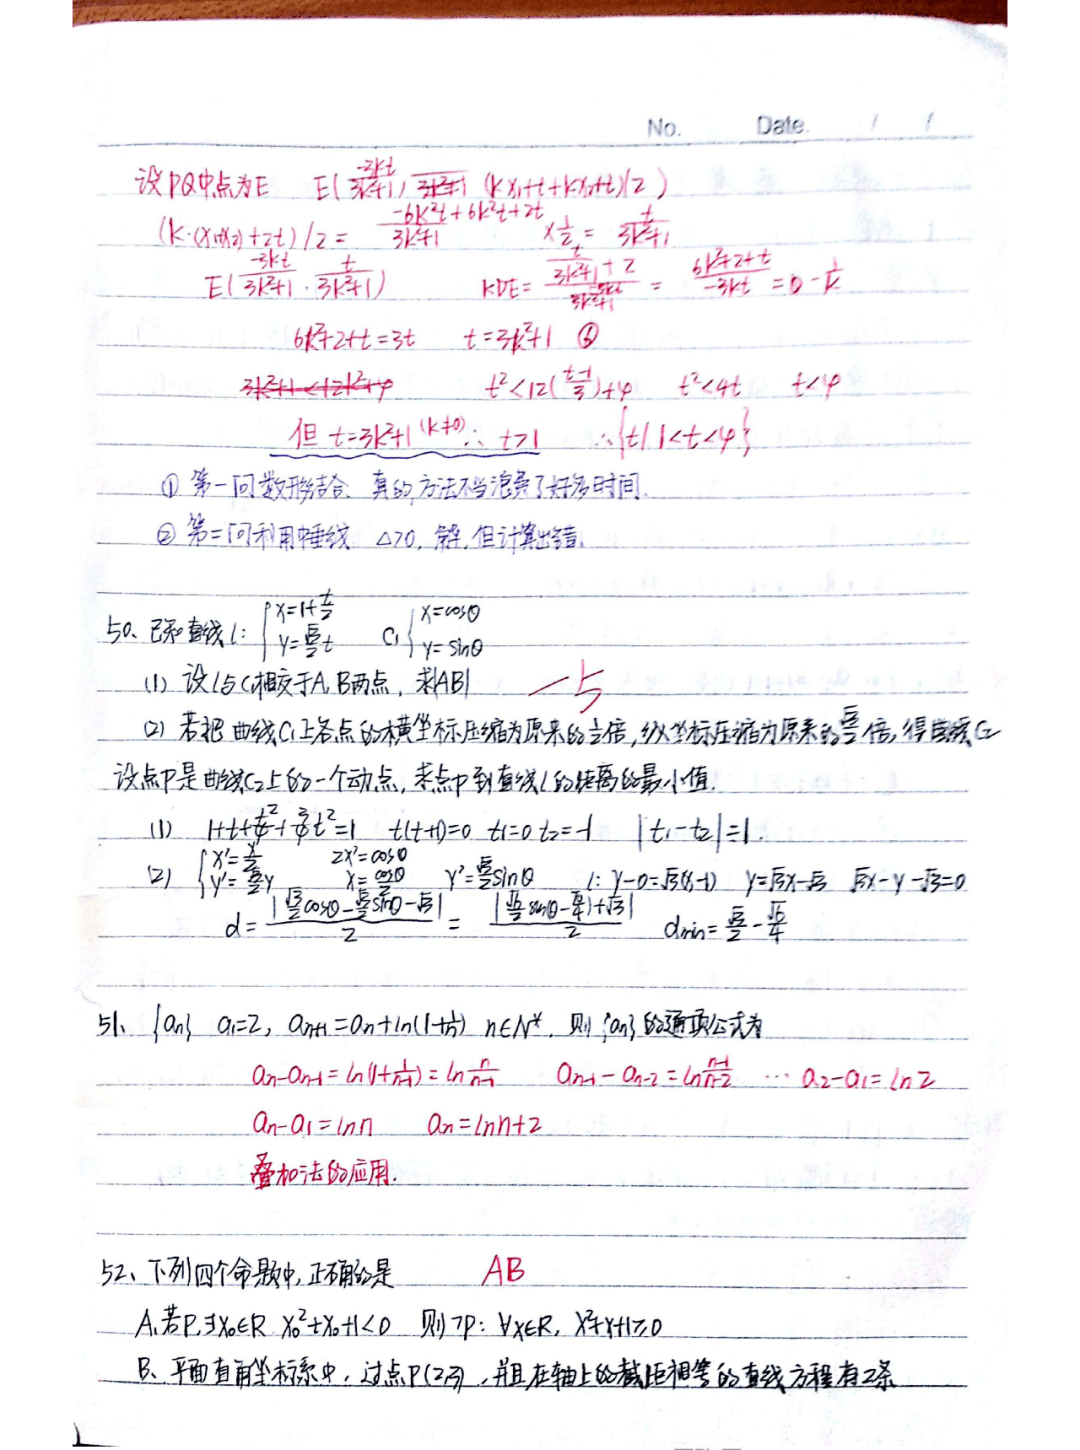 No. Date. / /
设PQ中点为E E(-3kt/3k²+1, (kx₁+t+kx₂+t)/2)
(k·(x₁+x₂)+2t)/2 = -6k²t+6k²t+2t/3k²+1 ×1/2 = t/3k²+1
E(-3kt/3k²+1 , t/3k²+1) KDE= (t/3k²+1 +2)/(-3kt/3k²+1) = 6k²+2+t/-3kt = -1/k
6k²+2+t=3t t=3k²+1 ⑥
t²<12(t-1/3)+4 t²<4t t<4
但 t=3k²+1 (k≠0) ∴ t>1 ∴{t|1<t<4}
① 第一问数形结合、真的,方法不当浪费了好多时间.
② 第二问利用中垂线 △>0, 解, 但计算出错.
50、已知直线l: {x=1+t/2 y=√3/2t C₁{x=cosθ y=sinθ
(1) 设l与C₁相交于A,B两点, 求|AB| 一5
(2) 若把曲线C₁上各点的横坐标压缩为原来的1/2倍,纵坐标压缩为原来的√3/2倍,得曲线C₂
设点P是曲线C₂上的一个动点,求点P到直线l的距离的最小值.
(1) 1+t+t²/4+3/4t²=1 t(t+1)=0 t₁=0 t₂=-1 |t₁-t₂|=1.
(2) {x'=x/2 y'=√3/2y 2x'=cosθ x=cosθ/2 y'=√3/2sinθ l: y-0=√3(x-1) y=√3x-√3 √3x-y-√3=0
d=|√3/2cosθ-√3/2sinθ-√3|/2 = |√6/2sin(θ-π/4)+√3|/2 dmin=√3/2-√6/4
51、{an} a₁=2, an+1=an+ln(1+1/n) n∈N*, 则{an}的通项公式为
an-an-1=ln(1+1/n-1)=ln n/n-1 an-1-an-2=ln n-1/n-2 ··· a₂-a₁=ln2
an-a₁=lnn an=lnn+2
叠加法的应用.
52、下列四个命题中,正确的是 AB
A、若P:∃x₀∈R x₀²+x₀+1<0 则¬P: ∀x∈R, x²+x+1≥0
B、平面直角坐标系中,过点P(2,3),并且在轴上的截距相等的直线方程有2条